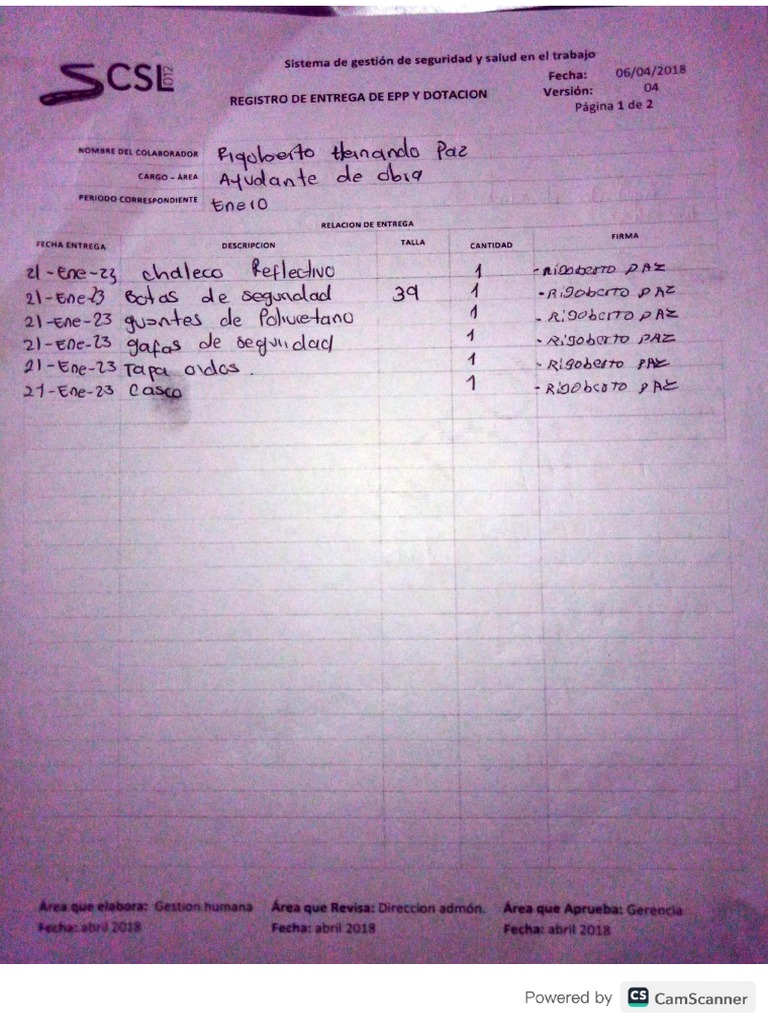 SCSL 2012
Sistema de gestión de seguridad y salud en el trabajo
REGISTRO DE ENTREGA DE EPP Y DOTACION
Fecha: 06/04/2018
Versión: 04
Página 1 de 2
NOMBRE DEL COLABORADOR Rigoberto Hernando Paz
CARGO – ÁREA Ayudante de obra
PERIODO CORRESPONDIENTE Enero
RELACION DE ENTREGA
FECHA ENTREGA DESCRIPCION TALLA CANTIDAD FIRMA
21-Ene-23 chaleco Reflectivo 1 - Rigoberto PAZ
21-Ene-23 Botas de seguridad 39 1 - Rigoberto PAZ
21-Ene-23 guantes de Poliuretano 1 - Rigoberto PAZ
21-Ene-23 gafas de seguridad 1 - Rigoberto PAZ
21-Ene-23 Tapa oidos. 1 - Rigoberto PAZ
21-Ene-23 Casco 1 - Rigoberto PAZ
Área que elabora: Gestion humana Área que Revisa: Direccion admón. Área que Aprueba: Gerencia
Fecha: abril 2018 Fecha: abril 2018 Fecha: abril 2018
Powered by CS CamScanner